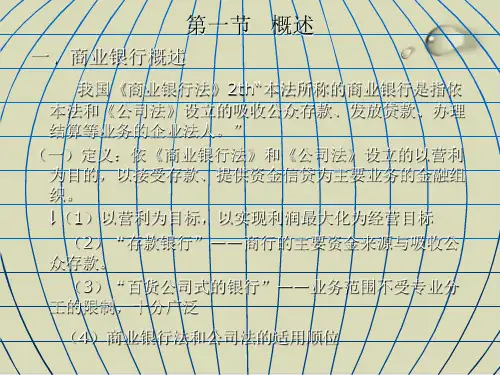 第一节 概述
一．商业银行概述
我国《商业银行法》2th“本法所称的商业银行是指依
本法和《公司法》设立的吸收公众存款、发放贷款、办理
结算等业务的企业法人。”
（一）定义：依《商业银行法》和《公司法》设立的以营利
为目的，以接受存款、提供资金信贷为主要业务的金融组
织。
↓（1）以营利为目标，以实现利润最大化为经营目标
（2）“存款银行”——商行的主要资金来源与吸收公
众存款。
（3）“百货公司式的银行”——业务范围不受专业分
工的限制，十分广泛
（4）商业银行法和公司法的适用顺位